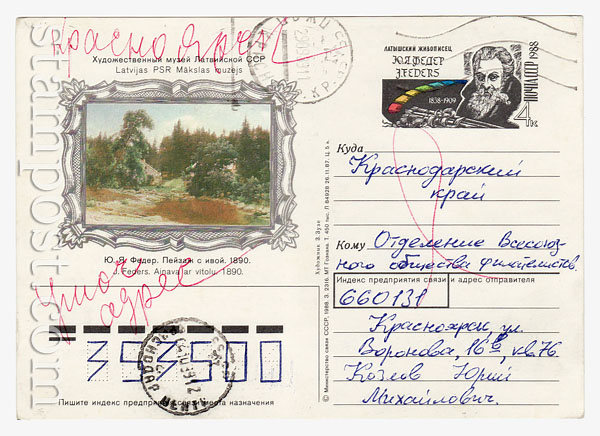 Красноярск
Художественный музей Латвийской ССР
Latvijas PSR Mākslas muzejs
Ю. Я. Федер. Пейзаж с ивой. 1890.
J. Feders. Ainava ar vītolu. 1890.
Уточ.
адрес
353500
Пишите индекс предприятия связи места назначения
© Министерство связи СССР, 1988. З. 2316. МТ Гознака. Т. 450 тыс. Л 84928 26.11.87. Ц. 5 к.
Художник З. Зузе
ЛАТЫШСКИЙ ЖИВОПИСЕЦ
Ю.Я.ФЕДЕР
J.FEDERS
1838-1909
ПОЧТА СССР 1988
4 к
Куда
Краснодарский
край
Кому Отделение Всесоюз-
ного общества филателистов.
Индекс предприятия связи и адрес отправителя
660131
Красноярск, ул.
Воронова, 16б, кв 76.
Козлов Юрий
Михайлович.
stampost.com